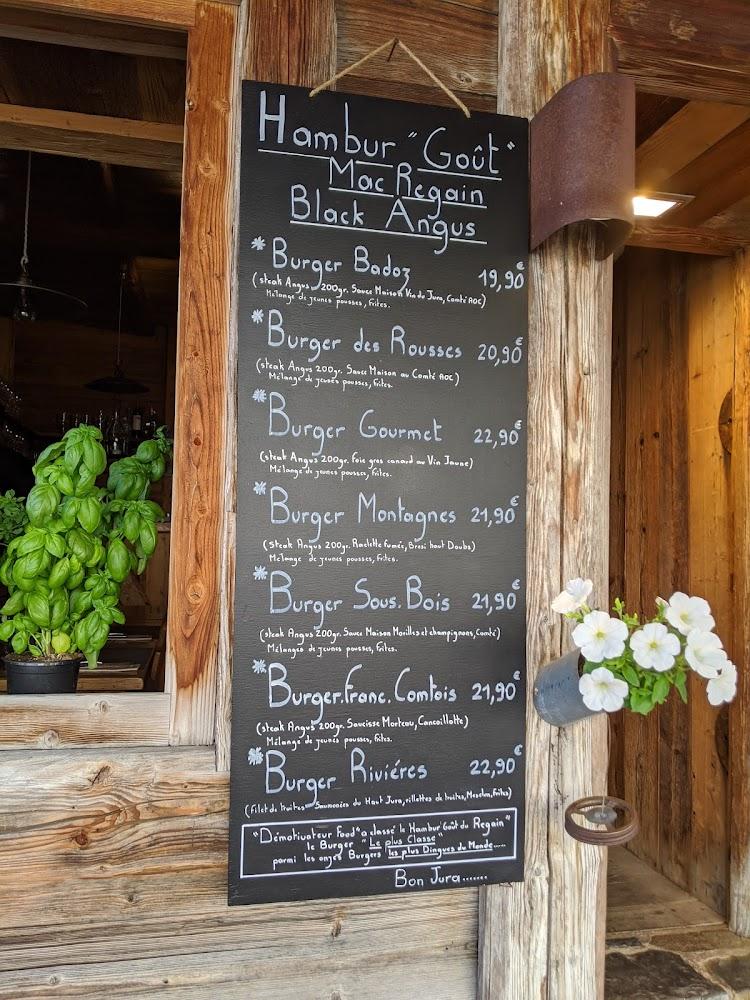 Hambur "Goût"
Mac Regain
Black Angus
* Burger Badoz 19,90€
(steak Angus 200gr. Sauce Maison Vin du Jura, Comté AOC)
Mélange de jeunes pousses, frites.
* Burger des Rousses 20,90€
(steak Angus 200gr. Sauce Maison au Comté AOC)
Mélange de jeunes pousses, frites.
* Burger Gourmet 22,90€
(steak Angus 200gr. Foie gras canard au Vin Jaune)
Mélange de jeunes pousses, frites.
* Burger Montagnes 21,90€
(steak Angus 200gr. Raclette fumée, Bresi haut Doubs)
Mélange de jeunes pousses, frites.
* Burger Sous.Bois 21,90€
(steak Angus 200gr. Sauce Maison Morilles et champignons, Comté)
Mélanges de jeunes pousses, frites.
* Burger.Franc.Comtois 21,90€
(steak Angus 200gr. Saucisse Morteau, Cancoillotte)
Mélange de jeunes pousses, frites.
* Burger Riviéres 22,90€
(filet de truites Saumonées du Haut Jura, rillettes de truites, Mesclun, frites)
"Démotivateur Food" a classé le Hambur'Goût du Regain"
le Burger "Le plus Classe"
parmi les onze Burgers les plus Dingues du Monde.....
Bon Jura.......